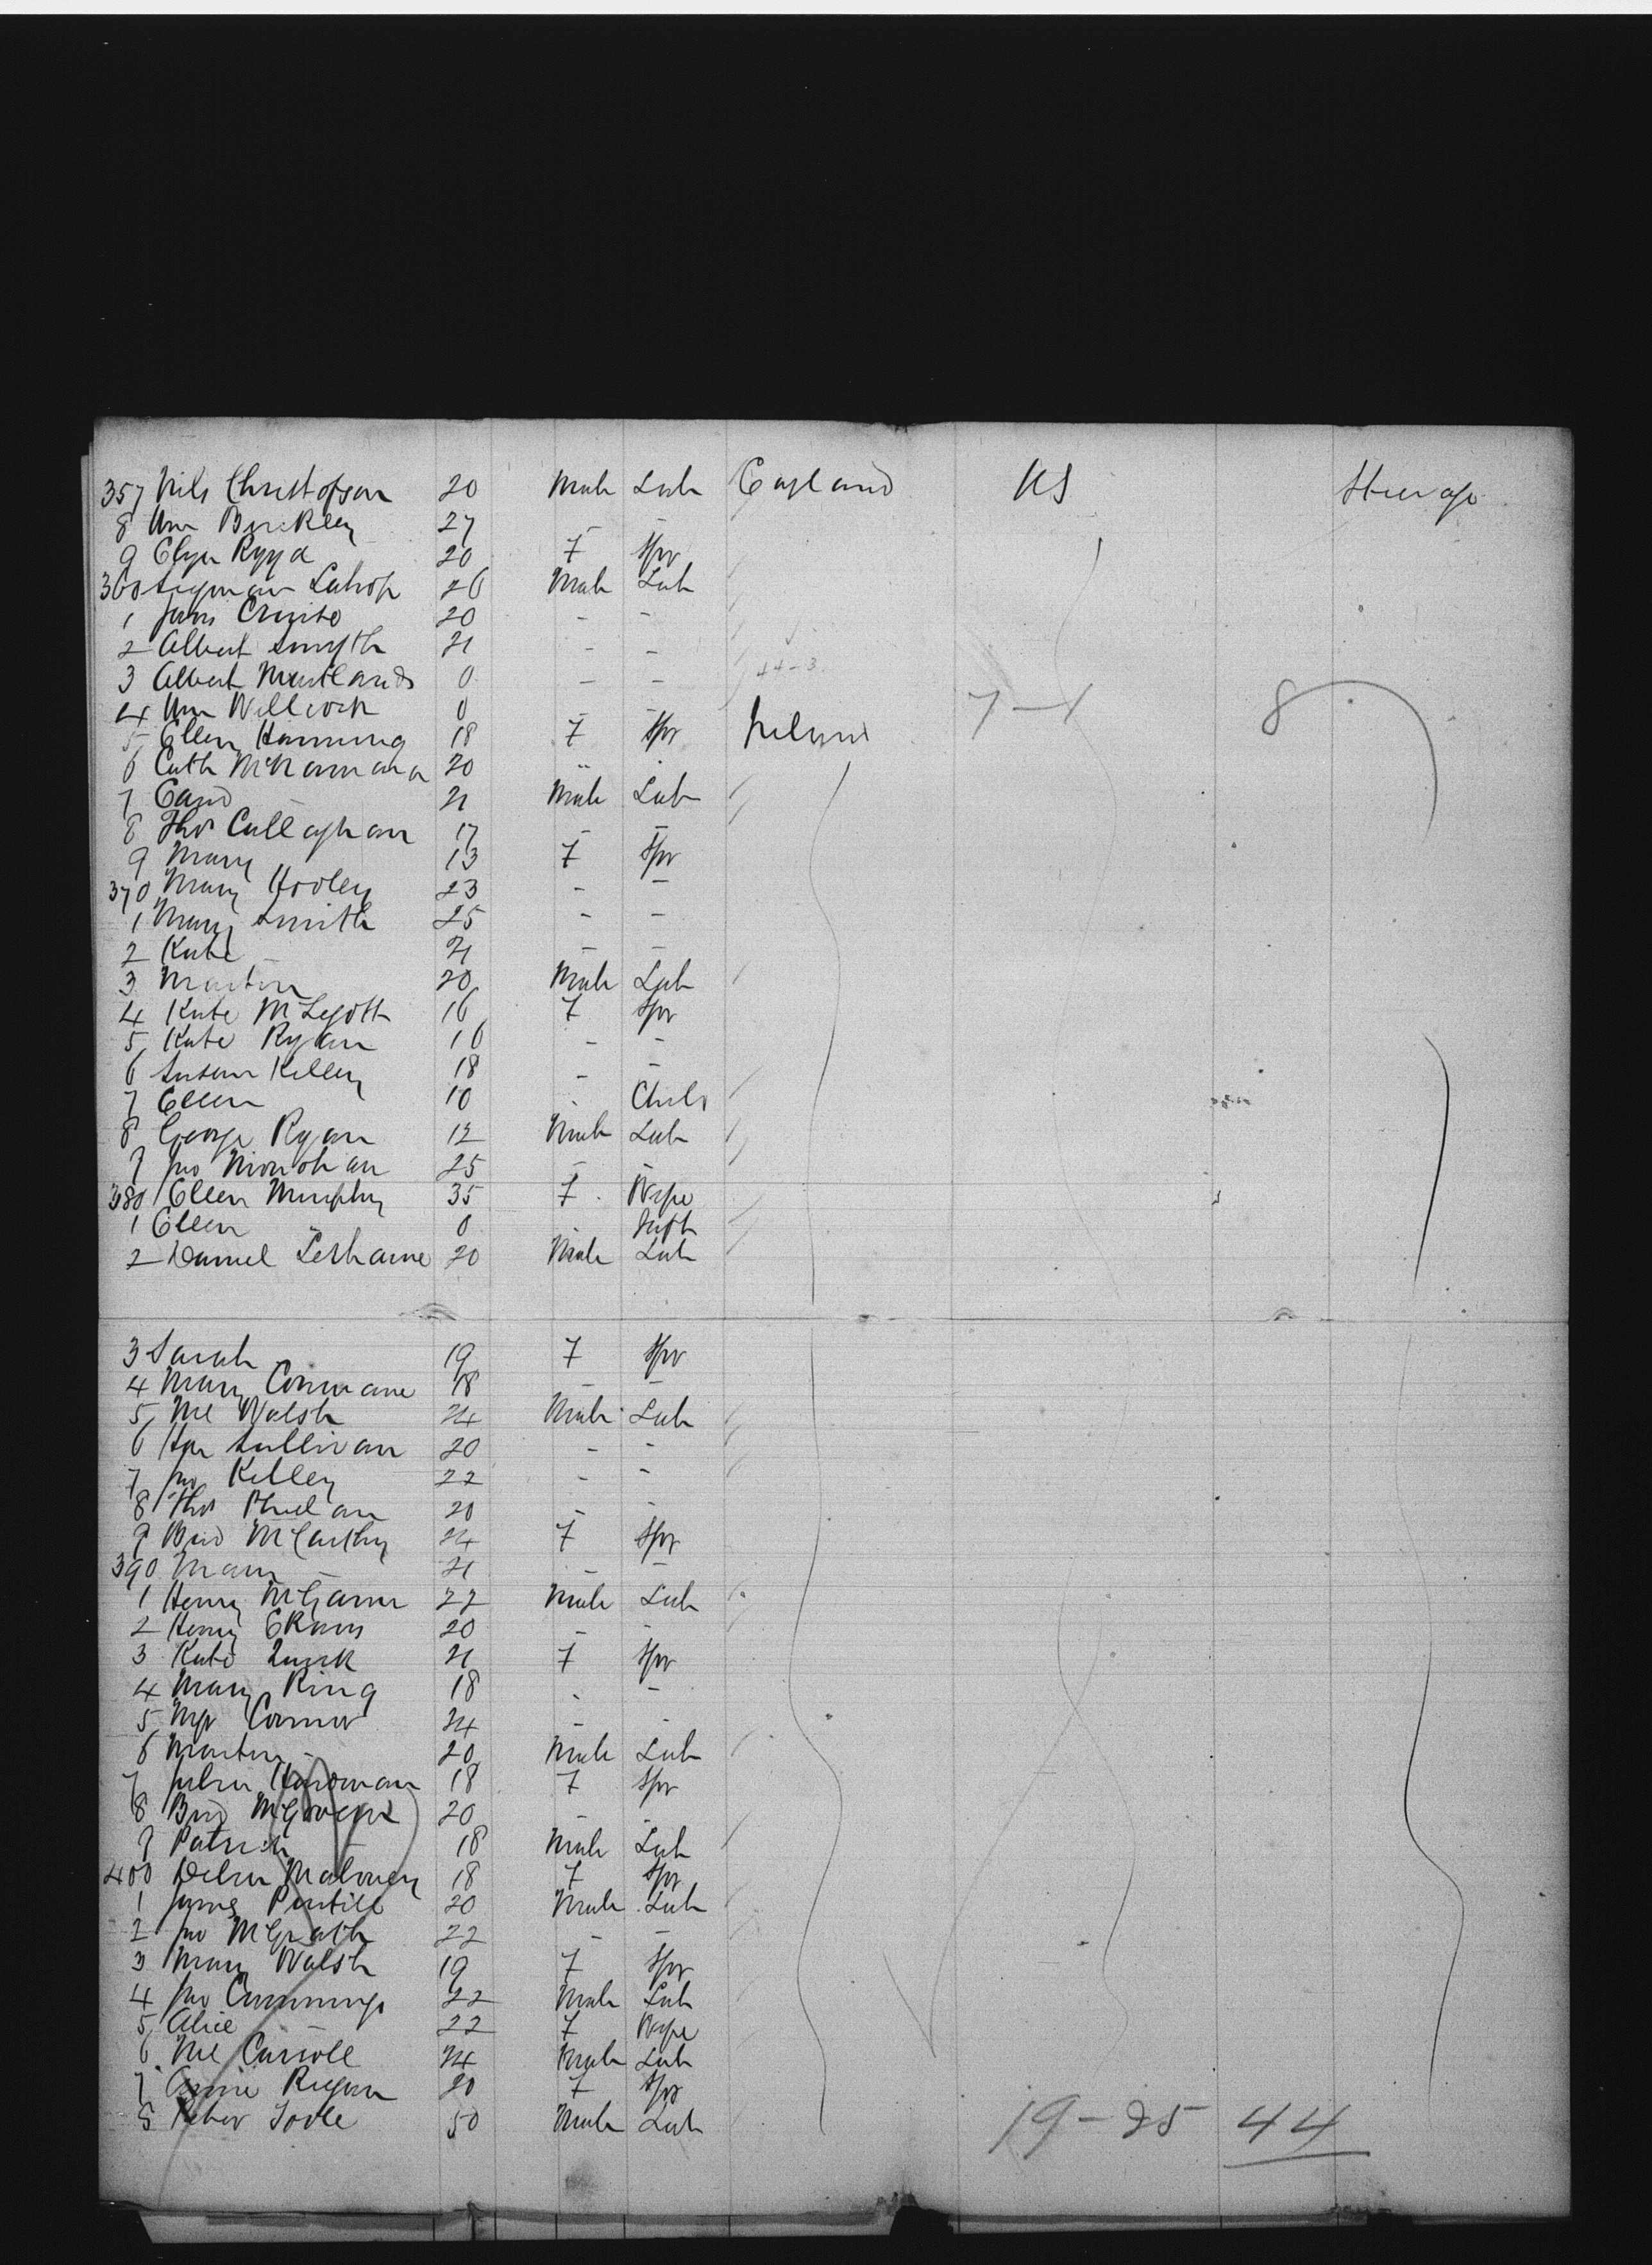 357 Nils Christofson 20 Male Lab England US Steerage
8 Wm Buckley 27 - -
9 20 F Spr
360 26 Male Lab
1 20 - -
2 Albert Smyth 21 - -
3 Albert 0 - -
4 Wm Willcock 0
5 Ellen 18 F Spr Ireland 7-1 8
6 Cath McNamara 20
7 21 Male Lab
8 Thos Callaghan 17 - -
9 Mary 13 F Spr
370 Mary Hooley 23 - -
1 Mary Smith 25 - -
2 Kate 21 - -
3 Martin 20 Male Lab
4 Kate 16 F Spr
5 Kate Ryan 16 - -
6 Susan Kelley 18 - -
7 Ellen 10 Child
8 George Ryan 12 Male Lab
9 Jno 25 - -
380 Ellen Murphy 35 F Wife
1 Ellen 0 Inft
2 Daniel 20 Male Lab
3 Sarah 19 F Spr
4 Mary 18 - -
5 Ml Walsh 24 Male Lab
6 Sullivan 20 - -
7 Jno Kelley 22 - -
8 Thos Phelan 20 -
9 Brid McCarthy 24 F Spr
390 21 -
1 Henry McGann 22 Male Lab
2 Henry 20 - -
3 Kate Quirk 21 F Spr
4 Mary King 18 - -
5 Connor 24 - -
6 Martin - 20 Male Lab
7 18 F Spr
8 Brid 20 - -
9 Patrick 18 Male Lab
400 Delia Maloney 18 F Spr
1 James 20 Male Lab
2 Jno McGrath 22 - -
3 Mary Walsh 19 F Spr
4 Jno Cummings 22 Male Lab
5 Alice - 22 F Wife
6 Ml Carroll 24 Male Lab
7 Annie Regan 20 F Spr
8 Peter Toole 50 Male Lab
19-25 44